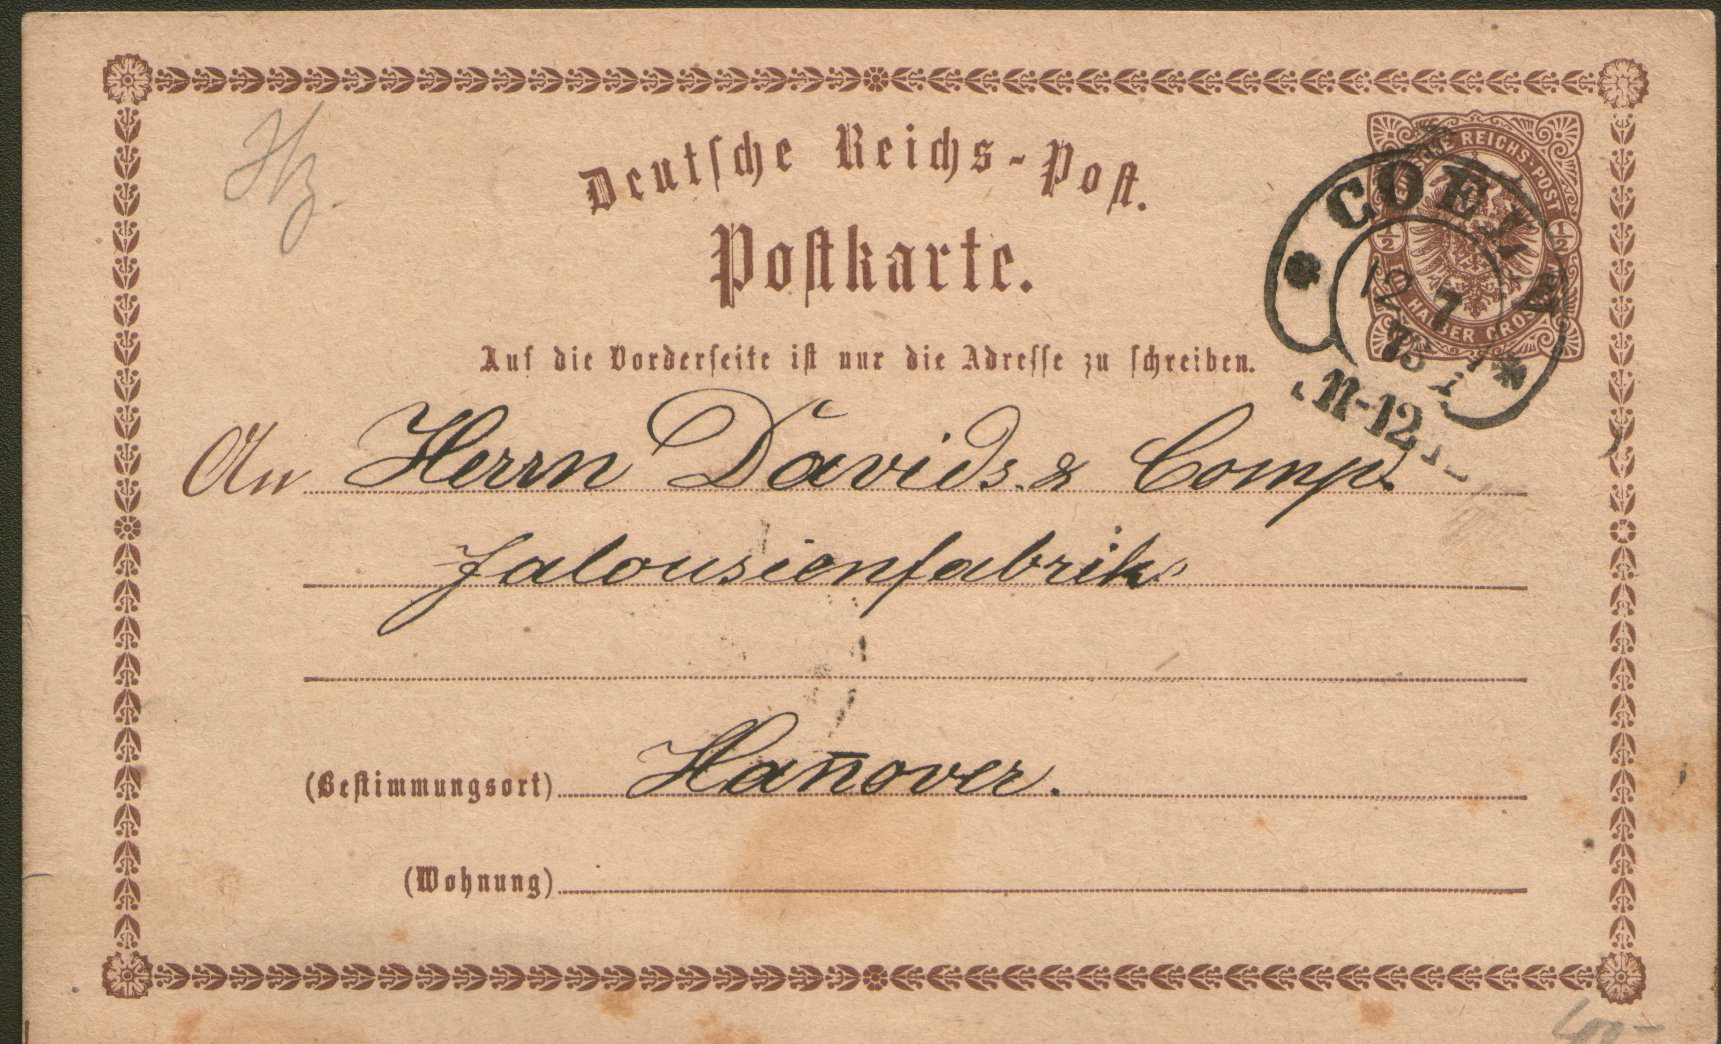 Deutsche Reichs-Post.
Postkarte.
DEUTSCHE REICHS-POST
1/2 1/2
HALBER GROSCHEN
COELN
12 7
75
11-12
Auf die Vorderseite ist nur die Adresse zu schreiben.
An Herrn Davids & Comp.
Jalousienfabrik
(Bestimmungsort) Han̄over.
(Wohnung)